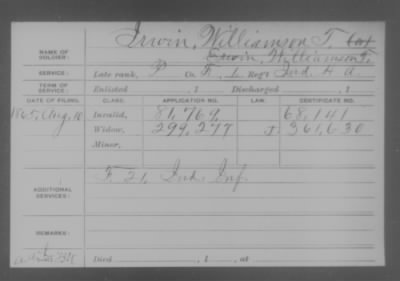 Irwin, Williamson T.
NAME OF SOLDIER: Erwin, Williamson T.
SERVICE: Late rank, P Co. F, 1, Reg't Ind. H A
TERM OF SERVICE: Enlisted , 1 Discharged , 1
DATE OF FILING. CLASS. APPLICATION NO. LAW. CERTIFICATE NO.
1865, Aug, 10 Invalid, 81,769 68,141
Widow, 299,277 361,630
Minor,
ADDITIONAL SERVICES: F 21, Ind. Inf.
REMARKS:
Died , 1 , at